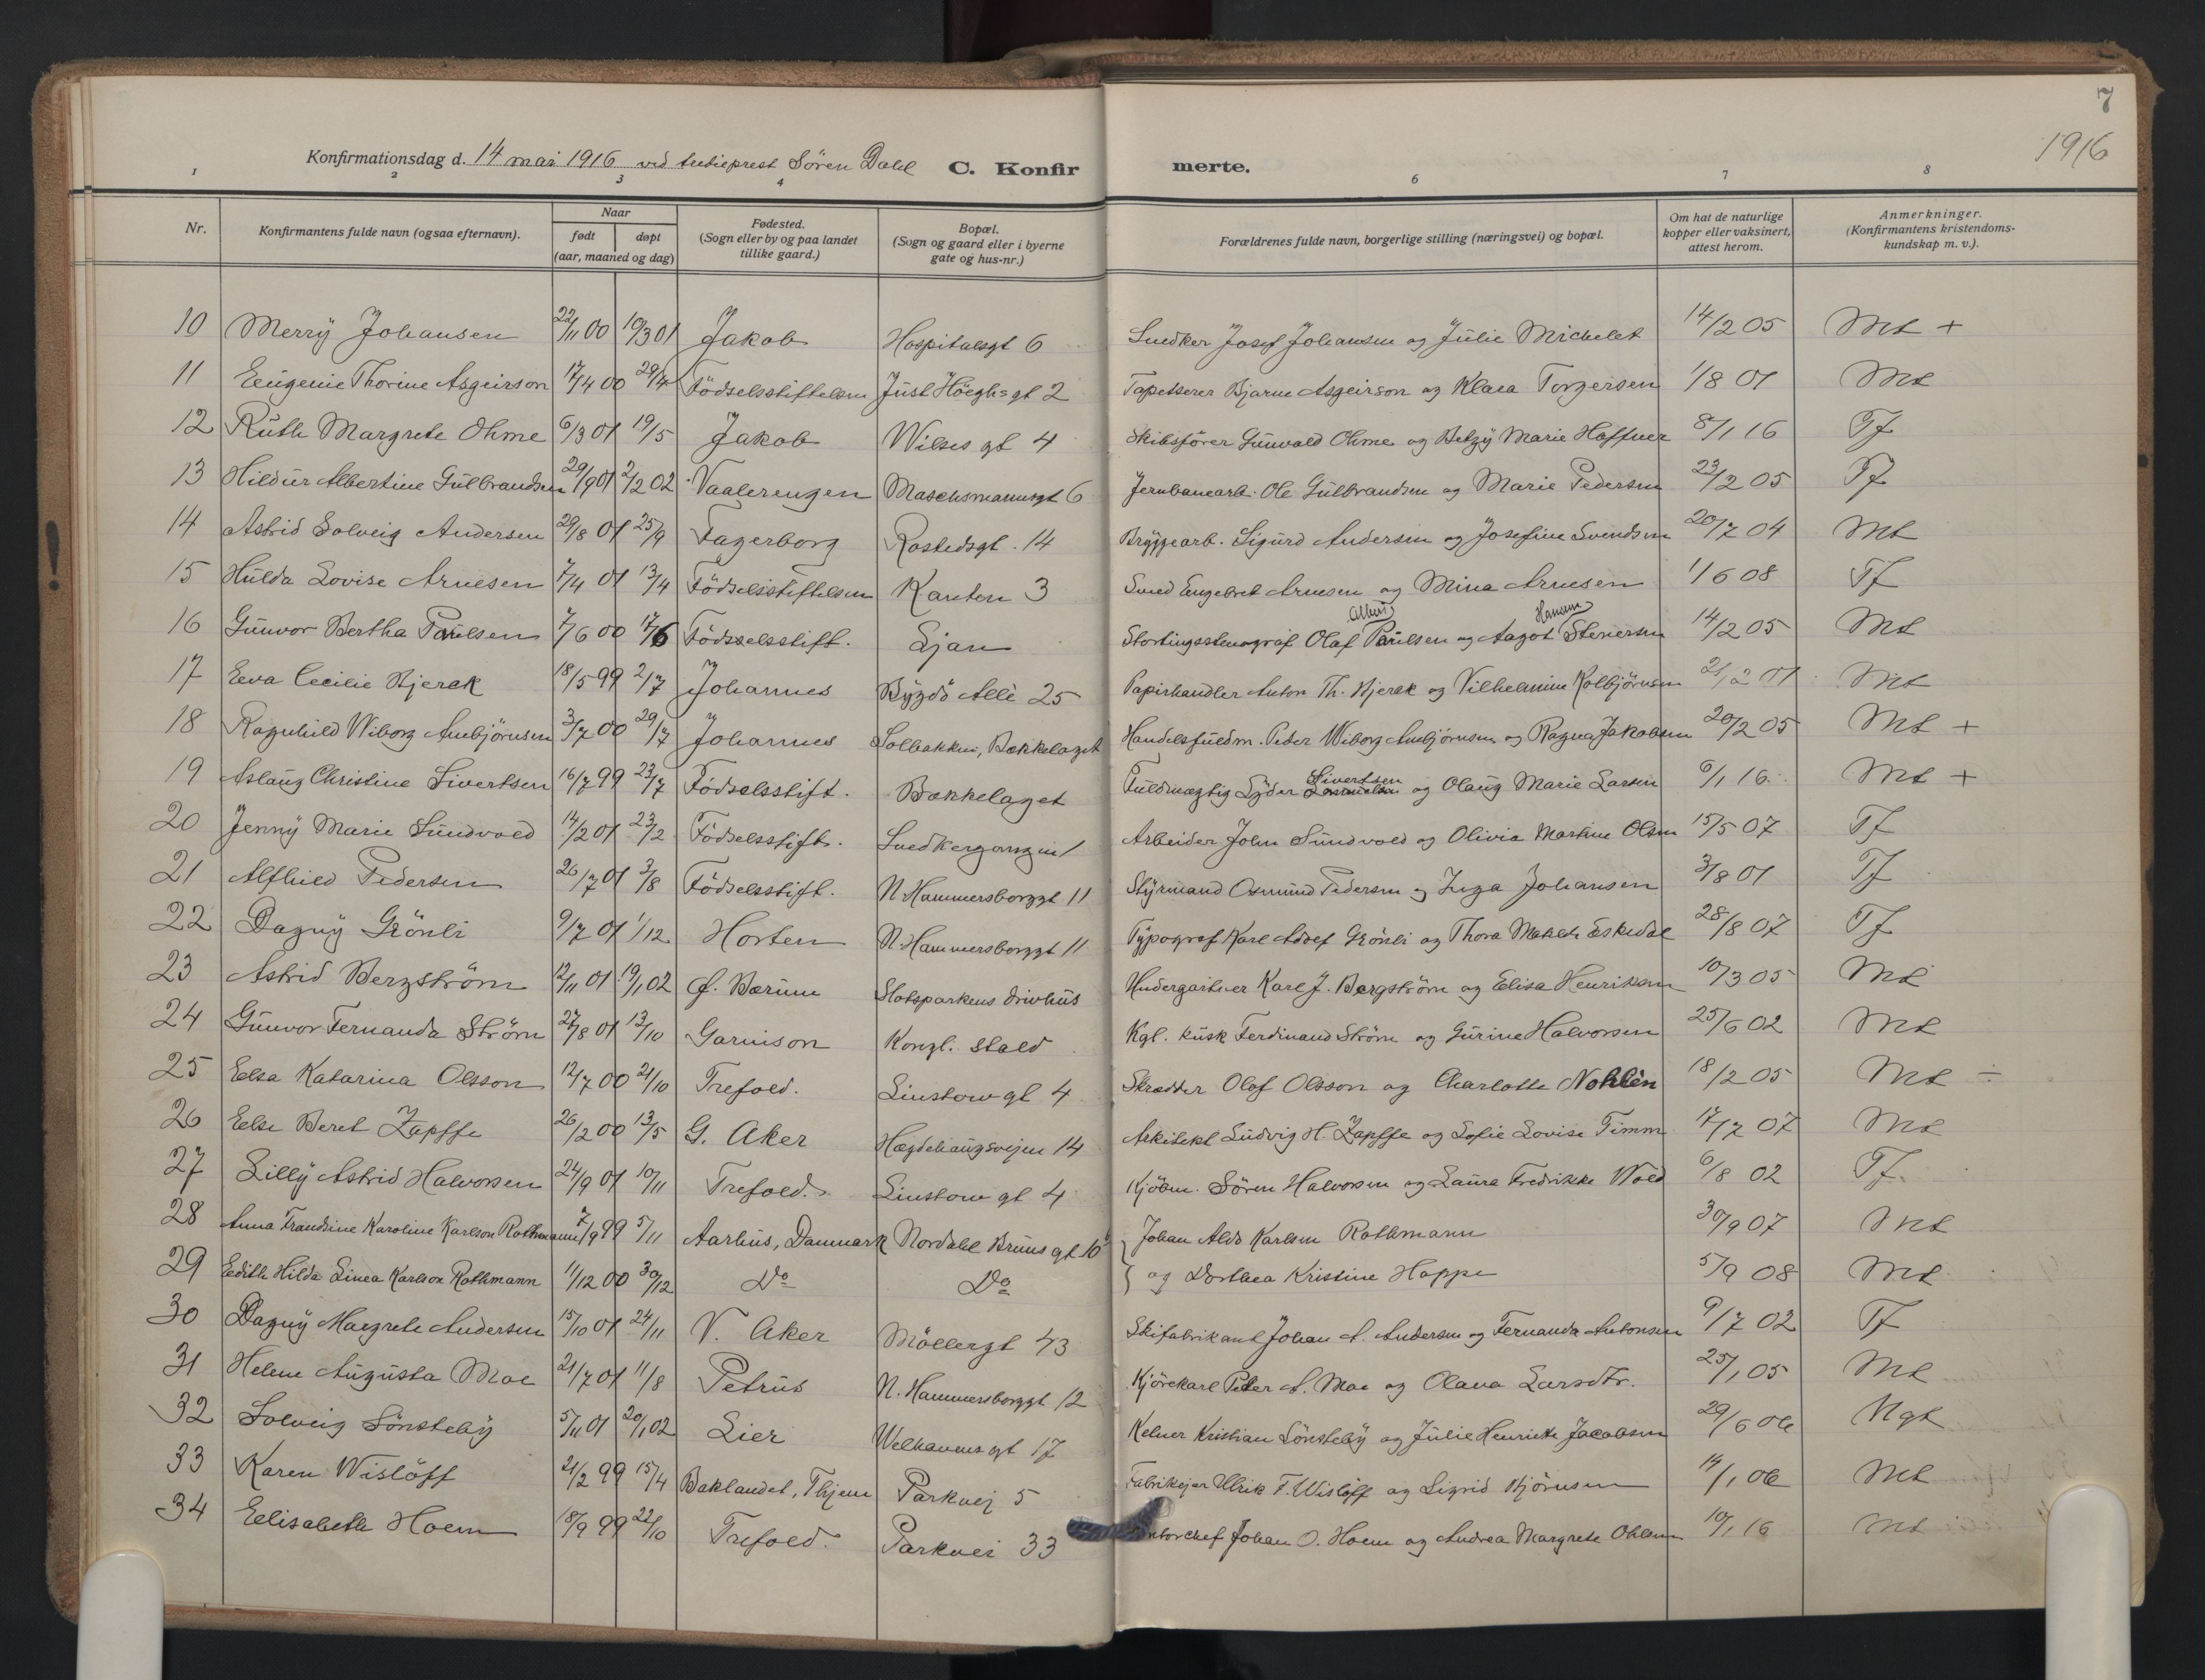 7
1916
Konfirmationsdag d. 14 mai 1916 ved Søren Dahl C. Konfirmerte.
1 2 3 4 6 7 8
Nr. Konfirmantens fulde navn (ogsaa efternavn). Naar født døpt (aar, maaned og dag) Fødested. (Sogn eller by og paa landet tillike gaard.) Bopæl. (Sogn og gaard eller i byerne gate og hus-nr.) Forældrenes fulde navn, borgerlige stilling (næringsvei) og bopæl. Om hat de naturlige kopper eller vaksinert, attest herom. Anmerkninger. (Konfirmantens kristendoms-kundskap m. v.).
10 Merry Johansen 22/11 00 10/3 01 Jakob Hospitalsgt 6 Snedker Josef Johansen og Julie Michelet 14/2 05 Mt +
11 Eugenie Thorine Asgeirson 17/4 00 29/4 Fødselsstiftelsen Just Høeghs gt 2 Tapetserer Bjarne Asgeirson og Klara Torgersen 1/8 01 Mt
12 Ruth Margrete Ohme 6/3 01 19/5 Jakob Wilses gt 4 Skibsfører Gunvald Ohme og Betzy Marie Haffner 8/1 16 Tf
13 Hildur Albertine Gulbrandsen 29/9 01 2/2 02 Vaalerengen Maschsmannsgt 6 Jernbanearb. Ole Gulbrandsen og Marie Pedersen 23/2 05 Tf
14 Astrid Solveig Andersen 29/8 01 25/9 Fagerborg Rostedsgt. 14 Bryggearb. Sigurd Andersen og Josefine Svendsen 20/7 04 Mt
15 Hulda Lovise Arnesen 7/4 01 13/4 Fødselsstiftelsen Kanten 3 Smed Engebret Arnesen og Mina Arnesen 1/6 08 Tf
16 Gunvor Bertha Paulsen 7/6 00 17/6 Fødsselsstift. Ljan Stortingsstenograf Olaf Paulsen og Aagot Hansen Stenersen 14/2 05 Mt
17 Eva Cecilie Bjerck 18/5 99 2/7 Johannes Bygdø Allè 25 Papirhandler Anton Th. Bjerck og Vilhelmine Kolbjørnsen 21/2 01 Mt
18 Ragnhild Wiborg Ambjørnsen 3/7 00 29/7 Johannes Solbakken, Bækkelaget Handelsfuldm. Peder Wiborg Ambjørnsen og Ragna Jakobsen 20/2 05 Mt +
19 Aslaug Christine Sivertsen 16/7 99 23/7 Fødselsstift. Bækkelaget Fuldmægtig Lyder Sivertsen og Olaug Marie Larsen 6/1 16 Mt +
20 Jenny Marie Sundvold 14/2 01 23/2 Fødselsstift. Snedkergangen 1 Arbeider John Sundvold og Olivia Martine Olsen 15/5 07 Tf
21 Alfhild Pedersen 26/7 01 3/8 Fødselsstift. N. Hammersborggt 11 Styrmand Osmund Pedersen og Inga Johansen 3/8 01 Tf
22 Dagny Grønli 9/7 01 1/12 Horten N. Hammersborggt 11 Typograf Karl Adolf Grønli og Thora Eskedal 28/8 07 Tf
23 Astrid Bergstrøm 12/11 01 19/1 02 Ø. Bærum Slotsparkens drivhus Undergartner Karl J. Bergstrøm og Elisa Henriksen 10/3 05 Mt
24 Gunvor Fernanda Strøm 27/8 01 13/10 Garnison Kongl. stald Kgl. kusk Ferdinand Strøm og Gurine Halvorsen 25/6 02 Mt
25 Elsa Katarina Olsson 12/7 00 21/10 Trefold. Linstow gt 4 Skrædder Olof Olsson og Charlotte Nohlèn 18/2 05 Mt ÷
26 Else Beret Zapffe 26/2 00 13/5 G. Aker Hægdehaugsveien 14 Arkitekt Ludvig H. Zapffe og Sofie Lovise Timm 17/7 07 Mt
27 Lilly Astrid Halvorsen 24/9 01 10/11 Trefold. Linstow gt 4 Kjøbm. Søren Halvorsen og Laura Fredrikke Wold 6/8 02 Tf.
28 Anna Frandsine Karoline Karlson Rothmann 7/9 99 5/11 Aarhus, Danmark Nordahl Bruns gt 10 Johan Aldo Karlsen Rothmann 30/9 07 Mt
29 Edith Hilda Linea Karlson Rothmann 11/12 00 30/12 Do Do og Dorthea Kristine Happe 5/9 08 Mt
30 Dagny Margrete Andersen 15/10 01 24/11 V. Aker Møllergt 43 Skifabrikant Johan A. Andersen og Fernanda Antonsen 9/7 02 Tf
31 Helene Augusta Moe 21/7 01 11/8 Petrus N. Hammersborggt 12 Kjørekarl Peter A. Moe og Olava Larsdtr. 25/1 05 Mt
32 Solveig Sønsteby 5/11 01 20/1 02 Lier Welhavens gt 17 Kelner Kristian Sønsteby og Julie Henriette Jacobsen 29/6 06 Ngt
33 Karen Wisløff 21/2 99 15/4 Baklandet, Thjem Parkvej 5 Fabrikejer Ulrik F. Wisløff og Sigrid Bjørnsen 14/1 06 Mt
34 Elisabeth Hoem 18/9 99 22/10 Trefold. Parkvei 33 Kontorchef Johan O. Hoem og Andrea Margrete Ohlsen 10/1 16 Mt